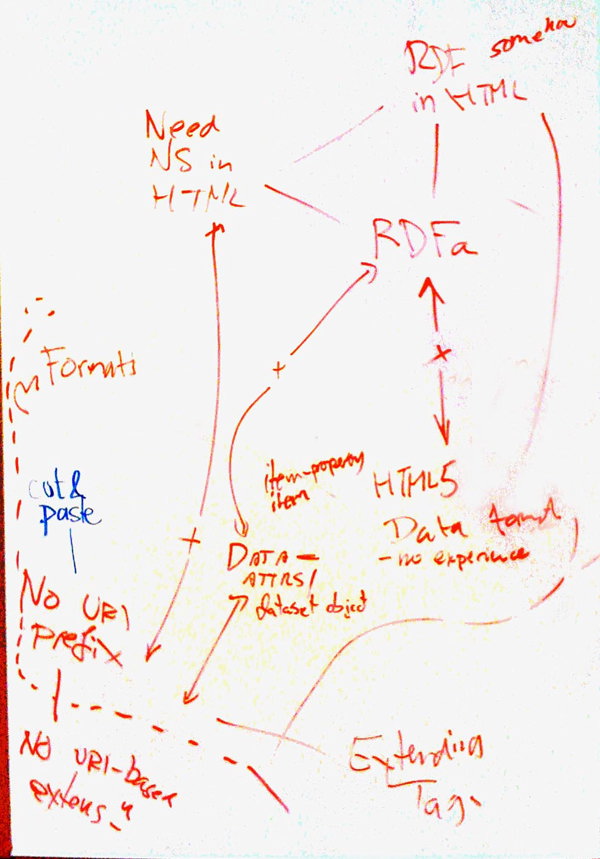 RDF somehow
in HTML
Need
NS in
HTML
RDFa
+
Formats
x
item-property
item
HTML5
cut &
paste
Data
- no experience
+
DATA-
ATTRS/
dataset object
No URI
prefix
No URI-based
Extending
Tags